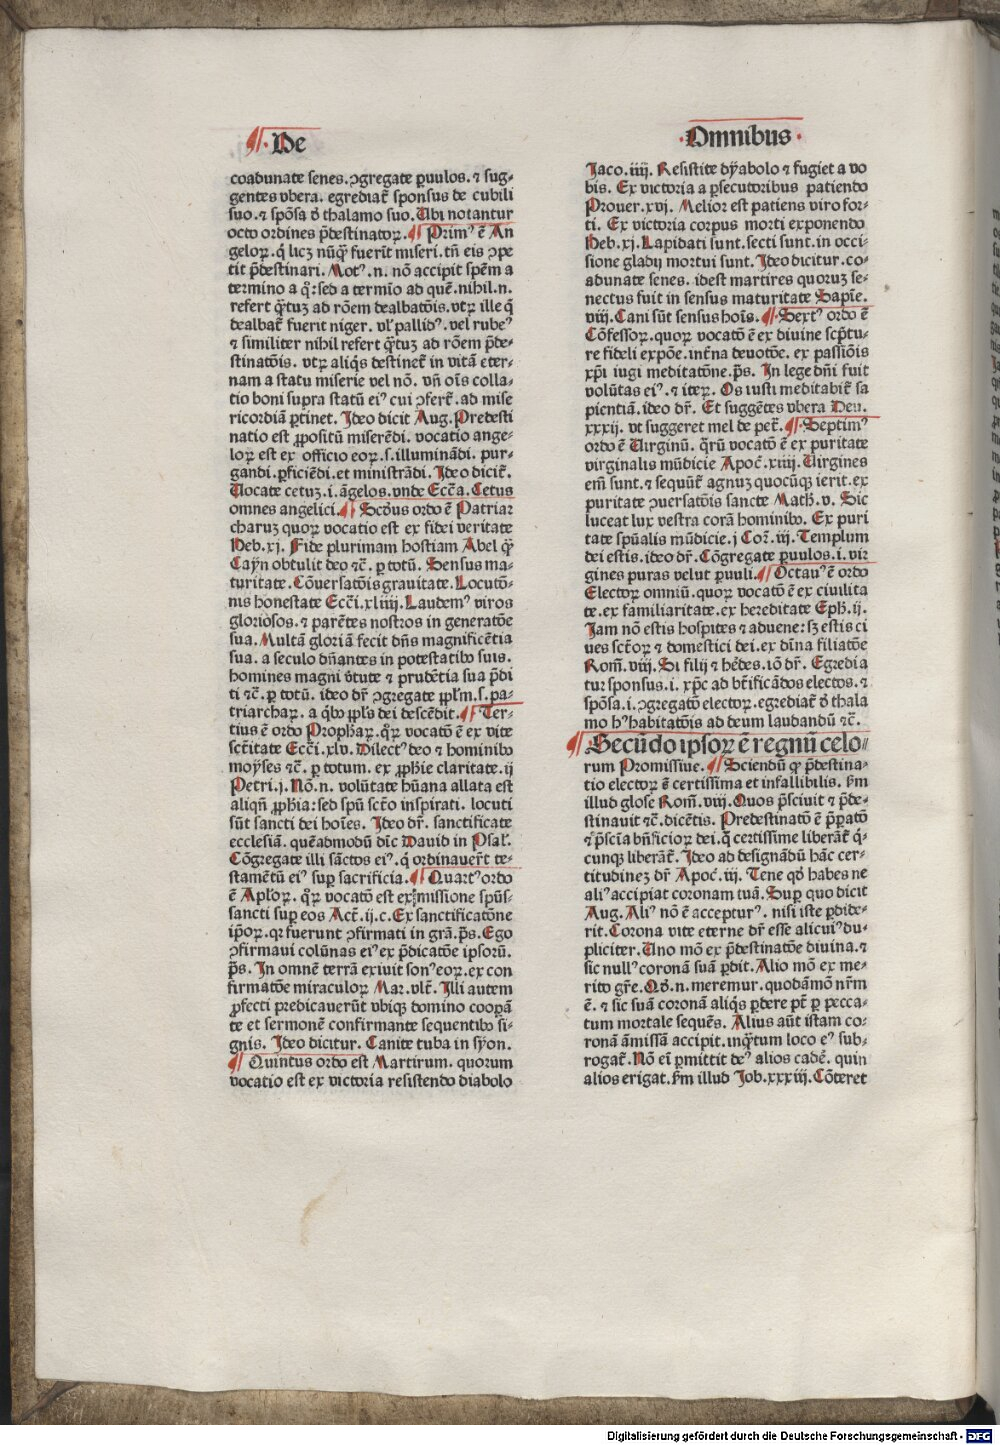 ¶ De
coadunate senes. ꝯgregate ꝑuulos. ⁊ sug-
gentes vbera. egrediat̃ sponsus de cubili
suo. ⁊ spõsa ð thalamo suo. Ubi notantur
octo ordines p̃destinatoꝝ. ¶ Primꝰ ẽ An
geloꝝ. q̃ licꝫ nũq̃ fuerĩt miseri. tñ eis ꝯpe
tit p̃destinari. Motꝰ .n. nõ accipit spẽm a
termino a q̊: sed a termĩo ad quẽ. nihil .n.
refert q̃tuꝫ ad rõem dealbatõis. vtꝝ ille q̃
dealbat̃ fuerit niger. vl̓ pallidꝰ. vel rubeꝰ
⁊ similiter nihil refert q̃tuꝫ ad rõem p̃de-
stinatõis. vtꝝ aliq̃s destinet̃ in vitã eter-
nam a statu miserie vel nõ. vñ oĩs colla-
tio boni supra statũ eiꝰ cui ꝯfert̃. ad mise
ricordiã ꝑtinet. Ideo dicit Aug. Predesti
natio est ꝓpositũ miserẽdi. vocatio ange-
loꝝ est ex officio eoꝝ. s. illuminãdi. pur-
gandi. ꝑficiẽdi. et ministrãdi. Ideo dicit̃.
Vocate cetuꝫ .i. ãgelos. vnde Ecc̃a. Cetus
omnes angelici. ¶ Scðus ordo ẽ Patriar
charuꝫ quoꝝ vocatio est ex fidei veritate
Heb. xj. Fide plurimam hostiam Abel q̃ꝫ
Cayn obtulit deo ⁊c̃. ꝑ totũ. Sensus ma-
turitate. Cõuersatõis grauitate. Locutõ-
nis honestate Ecc̃i. xliiij. Laudemꝰ viros
gloriosos. ⁊ parẽtes nostros in generatõe
sua. Multã gloriã fecit dñs magnificẽtia
sua. a seculo dñantes in potestatibꝰ suis.
homines magni v̓tute ⁊ prudẽtia sua p̃di
ti ⁊c̃. ꝑ totũ. ideo dr̃ ꝯgregate ꝓpl̓m. s. pa-
triarchaꝝ. a q̃bꝰ ꝓpl̓s dei descẽdit. ¶ Ter-
tius ẽ ordo Prophaꝝ. q̃ꝝ vocatõ ẽ ex vite
sct̃itate Ecc̃i. xlv. Dilectꝰ deo ⁊ hominibꝰ
moyses ⁊c̃. ꝑ totum. ex ꝓph̃ie claritate. ij
Petri. j. Nõ .n. volũtate hũana allata est
aliqñ ꝓph̃ia: sed spũ sct̃o inspirati. locuti
sũt sancti dei hoĩes. Ideo dr̃. sanctificate
ecclesiã. quẽadmodũ dic̃ Dauid in Psal̓.
Cõgregate illi sãctos eiꝰ. q̃ ordinauer̃t te-
stamẽtũ eiꝰ suꝑ sacrificia. ¶ Quartꝰ ordo
ẽ Apl̓oꝝ. q̃ꝝ vocatõ est ex missione spũs-
sancti suꝑ eos Act̃. ij. c. Ex sanctificatõne
ip̃oꝝ. qꝛ fuerunt ꝯfirmati in grã. p̃s. Ego
ꝯfirmaui colũnas eiꝰ ex p̃dicatõe ipsoꝝ.
p̃s. In omnẽ terrã exiuit sonꝰ eoꝝ. ex con
firmatõe miraculoꝝ Mar. vlt̃. Illi autem
ꝓfecti predicauerũt vbiqꝫ domino cooꝑã
te et sermonẽ confirmante sequentibꝰ si-
gnis. Ideo dicitur. Canite tuba in syon.
¶ Quintus ordo est Martirum. quorum
vocatio est ex victoria resistendo diabolo
Omnibus
Jaco. iiij. Resistite dyabolo ⁊ fugiet a vo
bis. Ex victoria a ꝑsecutoribus patiendo
Prouer. xvj. Melior est patiens viro for-
ti. Ex victoria corpus morti exponendo
Heb. xj. Lapidati sunt. secti sunt. in occi-
sione gladij mortui sunt. Ideo dicitur. co-
adunate senes. idest martires quoruꝫ se-
nectus fuit in sensus maturitate Sapiẽ.
viij. Cani sũt sensus hoĩs. ¶ Sextꝰ ordo ẽ
Cõfessoꝝ. quoꝝ vocatõ ẽ ex diuine scp̃tu-
re fideli expõe. inťna deuotõe. ex passiõis
xp̃i iugi meditatõne. p̃s. In lege dñi fuit
volũtas eiꝰ. ⁊ iteꝝ. Os iusti meditabit̃ sa
pientiã. ideo dr̃. Et suggẽtes vbera Deu.
xxxij. vt suggeret mel de pet̃. ¶ Septimꝰ
ordo ẽ Virginũ. q̃rũ vocatõ ẽ ex puritate
virginalis mũdicie Apoc̃. xiiij. Virgines
em̃ sunt. ⁊ sequũt̃ agnuꝫ quocũqꝫ ierit. ex
puritate ꝯuersatõis sancte Math̃. v. Sic
luceat lux vestra corã hominibꝰ. Ex puri
tate spũalis mũdicie. j Coꝝ. iij. Templum
dei estis. ideo dr̃. Cõgregate ꝑuulos. i. vir
gines puras velut ꝑuuli. ¶ Octauꝰ ẽ ordo
Electoꝝ omniũ. quoꝝ vocatõ ẽ ex ciuilita
te. ex familiaritate. ex hereditate Eph̃. ij.
Iam nõ estis hospites ⁊ aduene: sꝫ estis ci
ues sct̃oꝝ ⁊ domestici dei. ex diũna filiatõe
Rom̃. viij. Si filij ⁊ h̓des. iõ dr̃. Egredia
tur sponsus. i. xp̃c ad bt̃ificãdos electos. ⁊
spõsa .i. ꝯgregatõ electoꝝ. egrediat̃ ð thala
mo hꝰ habitatõis ad deum laudandũ ⁊c̃.
¶ Secũdo ipsoꝝ ẽ regnũ celo-
rum Promissiue. ¶ Sciendũ ꝙ p̃destina-
tio electoꝝ ẽ certissima et infallibilis. ẜm
illud glose Rom̃. viij. Quos p̃sciuit ⁊ p̃de-
stinauit ⁊c̃. dicẽtis. Predestinatõ ẽ p̃ꝑatõ
⁊ p̃scĩa bñficioꝝ dei. q̃ certissime liberãt̃ q̃-
cunqꝫ liberãt̃. Ideo ad designãdũ hãc cer-
titudineꝫ dr̃ Apoc̃. iij. Tene qð habes ne
aliꝰ accipiat coronam tuã. Suꝑ quo dicit
Aug. Aliꝰ nõ ẽ acceptur̃ꝰ. nisi iste ꝑdide-
rit. Corona vite eterne dr̃ esse alicuiꝰ du-
pliciter. Uno mõ ex p̃destinatõe diuina. ⁊
sic nullꝰ coronã suã ꝑdit. Alio mõ ex me-
rito gr̃e. Qð .n. meremur. quodãmõ nr̃m
ẽ. ⁊ sic suã coronã aliq̃s ꝑdere pt̃ ꝑ pecca-
tum mortale sequẽs. Alius aũt istam co-
ronã ãmissã accipit. inq̃tum loco eꝰ sub-
rogat̃. Nõ eĩ ꝑmittit deꝰ alios cadẽ. quin
alios erigat. ẜm illud Job. xxxiij. Cõteret
Digitalisierung gefördert durch die Deutsche Forschungsgemeinschaft - DFG